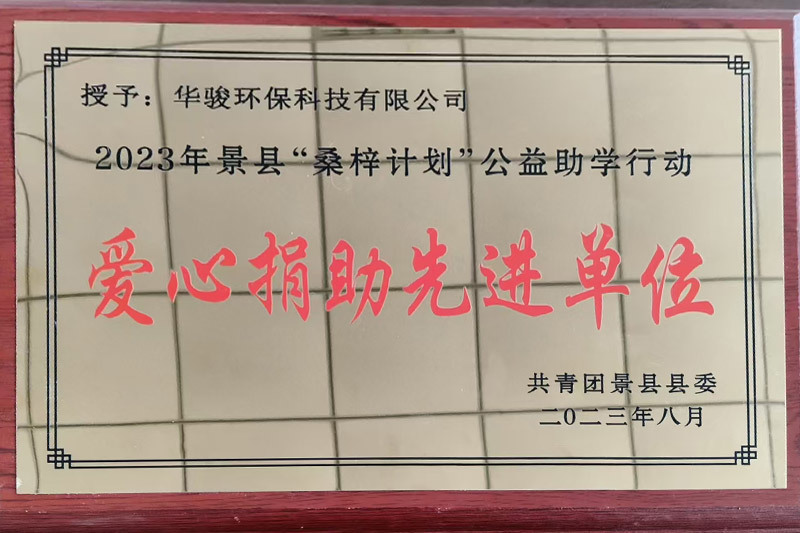 授予：华骏环保科技有限公司
2023年景县“桑梓计划”公益助学行动
爱心捐助先进单位
共青团景县县委
二〇二三年八月